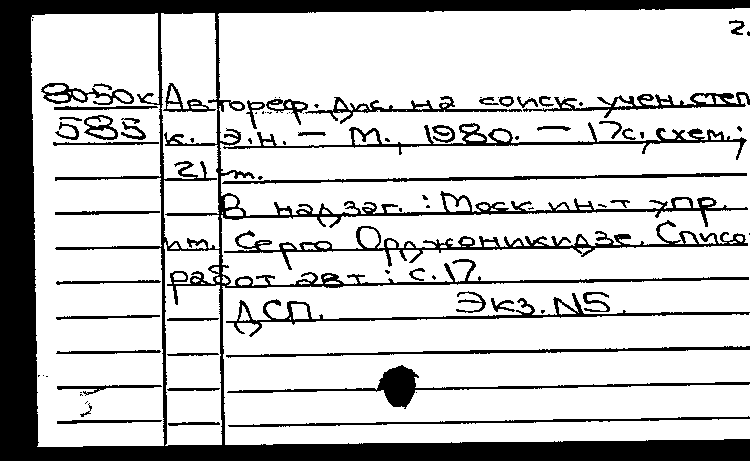 2.
80-50к Автореф. дис. на соиск. учен. степ
585 к. э.н. — М., 1980. — 17с, схем.;
21 см.
В надзаг.: Моск ин-т упр.
им. Серго Орджоникидзе. Списо
работ авт.: с. 17.
ДСП. Экз. N5.